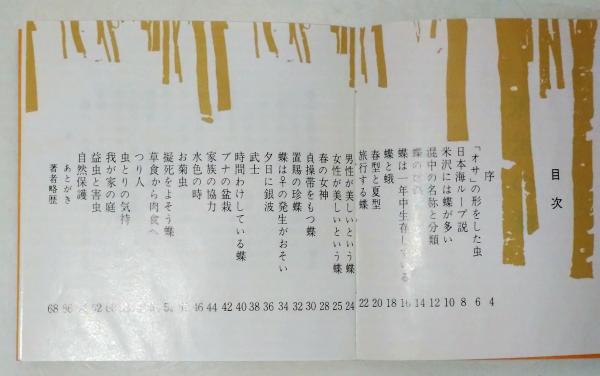 目次
序 4
「オサ」の形をした虫 6
日本海ループ説 8
米沢には蝶が多い 10
混中の名称と分類 12
蝶の 14
蝶は一年中生存している 16
蝶と蛾 18
春型と夏型 20
旅行する蝶 22
男性が美しいという蝶 24
女性が美しいという蝶 25
春の女神 28
貞操帯をもつ蝶 30
置賜の珍蝶 32
蝶は♀の発生がおそい 34
夕日に銀波 36
武士 38
時間わけしている蝶 40
ブナの盆栽 42
家族の協力 44
水色の時 46
お菊虫
擬死をよそう蝶
草食から肉食へ
つり人
虫とりの気持
我が家の庭
益虫と害虫
自然保護
あとがき
著者略歴 68